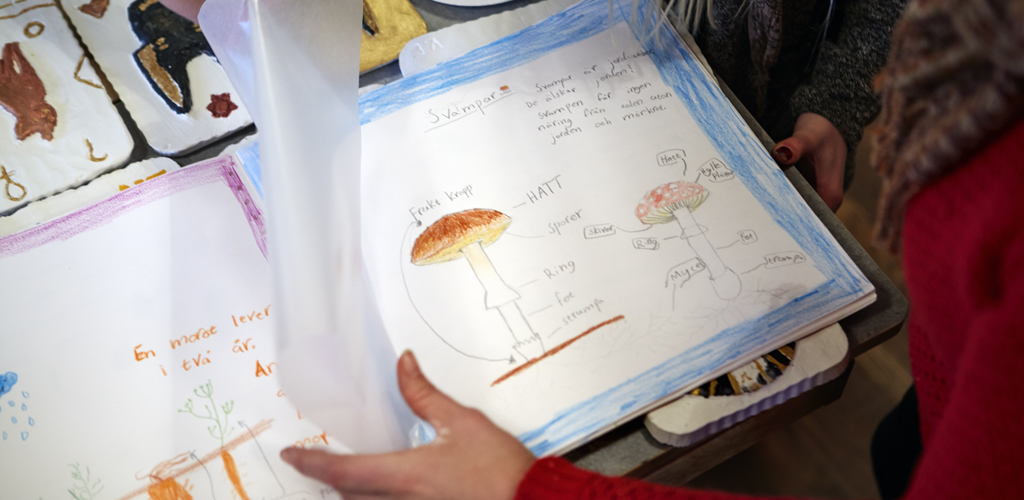 En morot lever
i två år.
An
Svampar
Svampar är
De älskar jorden!
Svampen får ingen
näring från solen utan
jorden och mörkret.
Frukt kropp
HATT
sporer
Ring
fot
strumpa
Hatt
skivor
Ring
fot
Strumpa
Myce